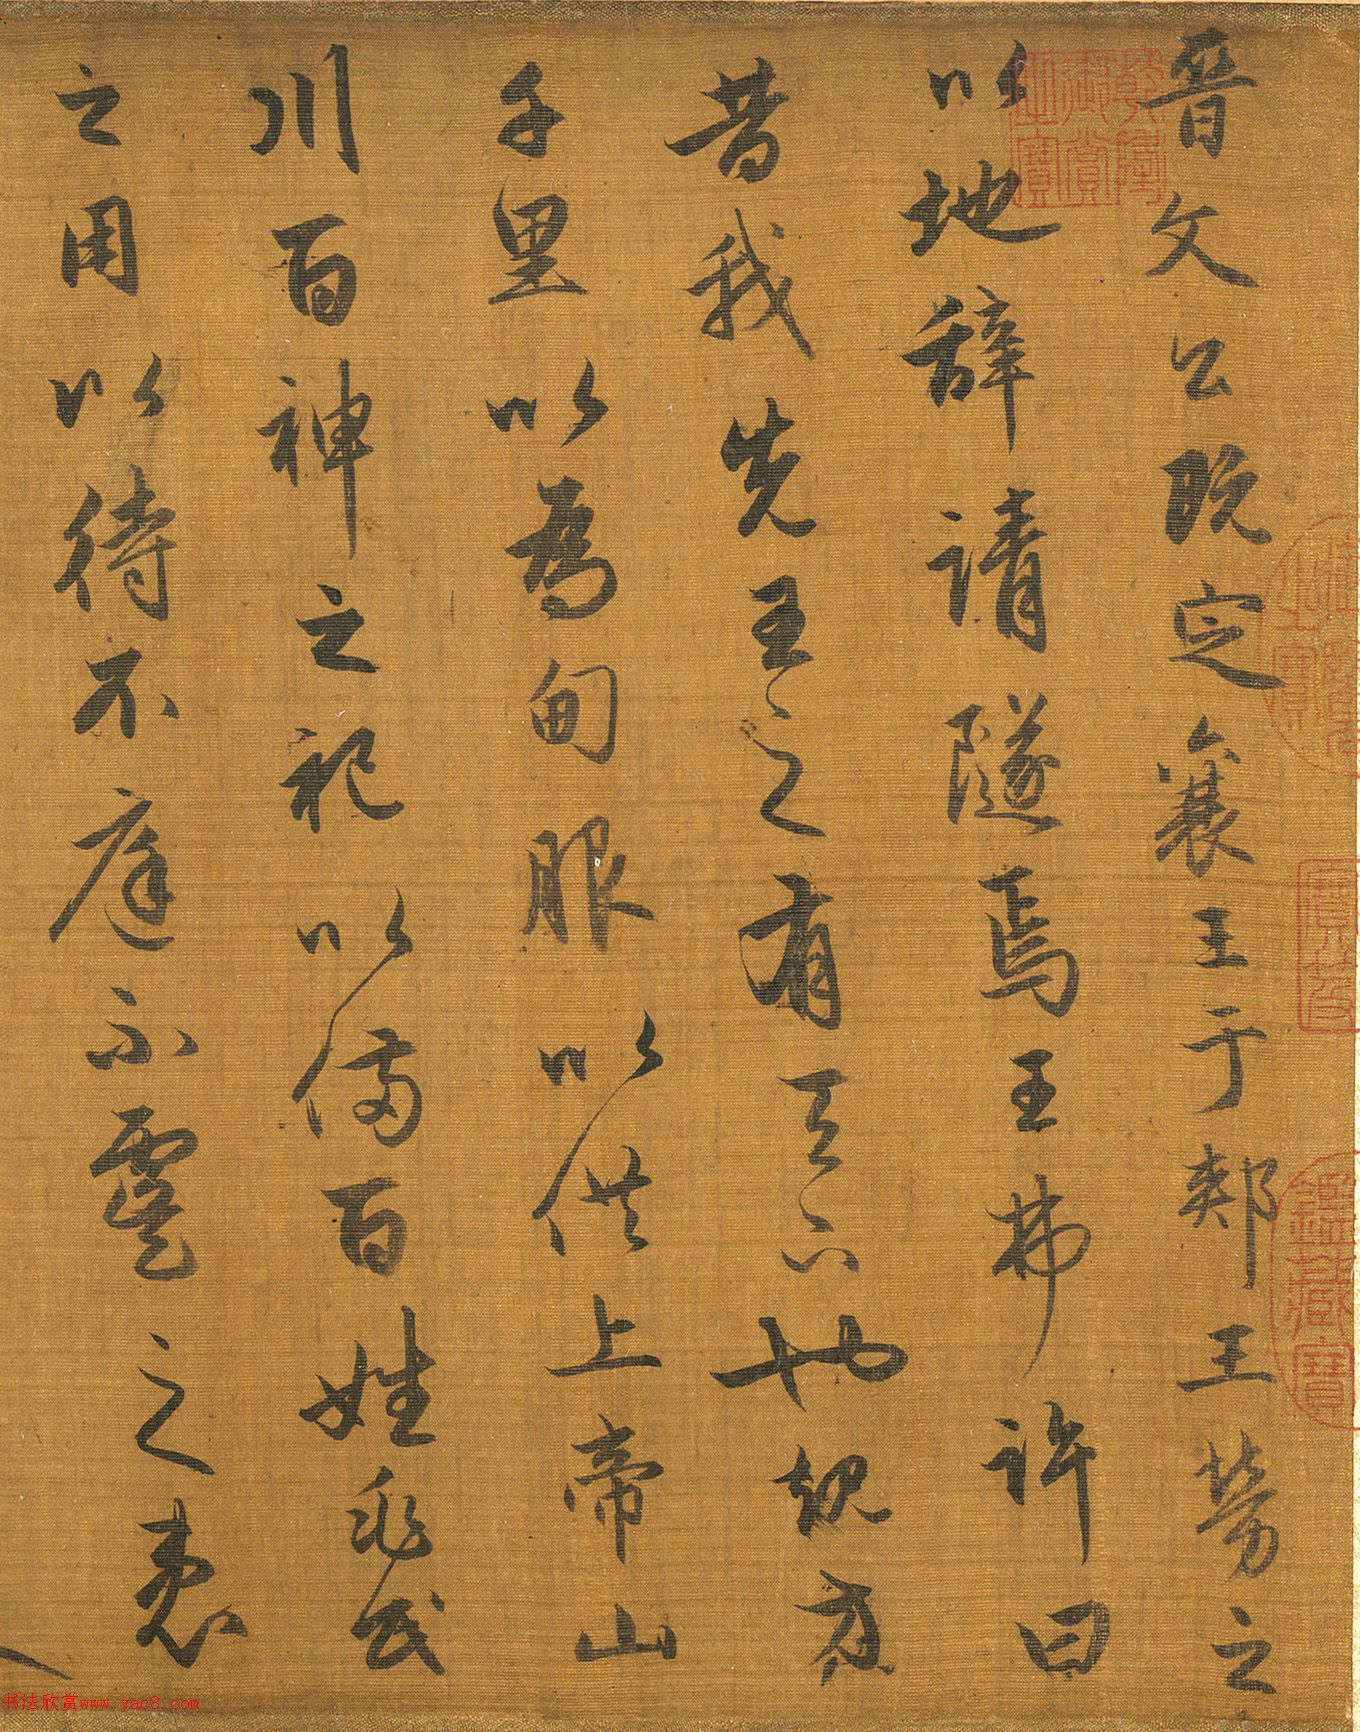 晋文公既定襄王于郏王劳之
以地辞请隧焉王弗许曰
昔我先王之有天下也规方
千里以為甸服以供上帝山
川百神之祀以俻百姓兆民
之用以待不庭不虞之患
乾隆御賞之寶
书法欣赏www.yac8.com